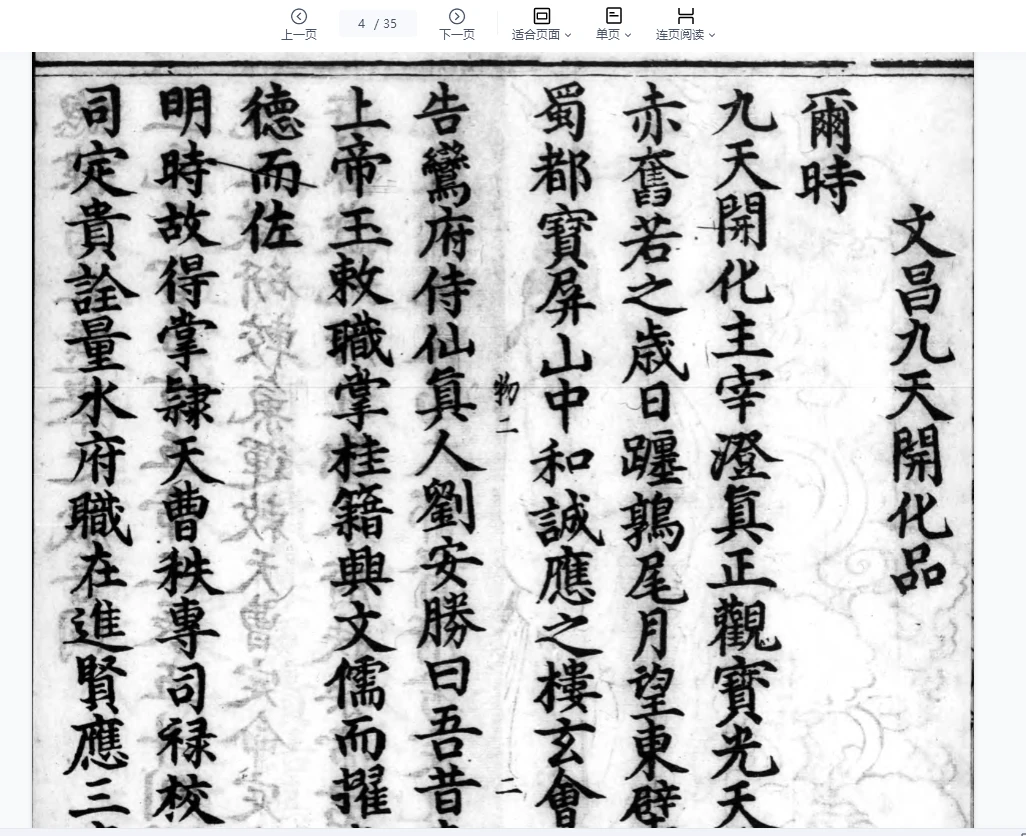 上一页 4 / 35 下一页 适合页面 单页 连页阅读
文昌九天開化品
爾時
九天開化主宰澄眞正觀寳光天
赤奮若之歳日躔鶉尾月望東壁
蜀都寳屏山中和誠應之樓玄會
告鸞府侍仙眞人劉安勝曰吾昔
物二
二
上帝王敕職掌桂籍興文儒而擢
德而佐
明時故得掌隷天曹秩專司禄校
司定貴詮量水府職在進賢應三